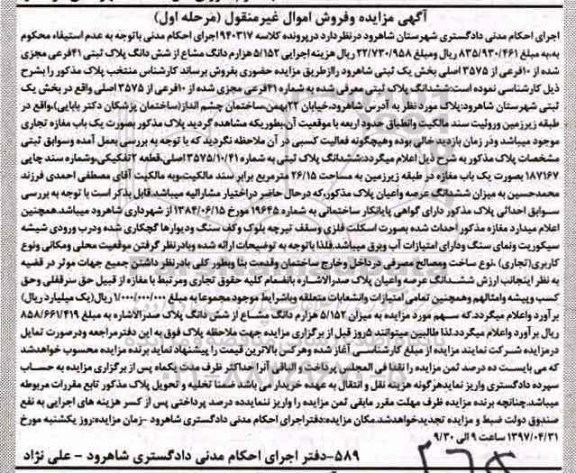 آگهی مزایده وفروش اموال غیرمنقول (مرحله اول)
اجرای احکام مدنی دادگستری شهرستان شاهرود درنظردارد درپرونده کلاسه ۹۴۰۳۱۷ اجرای احکام مدنی باتوجه به عدم استیفاء محکوم
به،به مبلغ ۸۳۵/۹۳۰/۴۶۱ ریال ومبلغ ۲۲/۷۳۰/۹۵۸ ریال هزینه اجرایی ۵/۱۵۲ هزارم دانگ مشاع از شش دانگ پلاک ثبتی ۴۱فرعی مجزی
شده از ۱۰فرعی از ۳۵۷۵ اصلی بخش یک ثبتی شاهرود راازطریق مزایده حضوری بفروش برساند کارشناس منتخب پلاک مذکور را بشرح
ذیل کارشناسی نموده است:ششدانگ پلاک ثبتی معرفی شده به شماره ۴۱فرعی مجزی شده از ۱۰فرعی از ۳۵۷۵ اصلی واقع در بخش یک
ثبتی شهرستان شاهرود:پلاک مورد نظر به آدرس شاهرود،خیابان ۲۲بهمن،ساختمان چشم انداز(ساختمان پزشکان دکتر بابایی)،واقع در
طبقه زیرزمین ورویت سند مالکیت وانطباق حدود اربعه با موقعیت آن،بطوریکه مشاهده گردید پلاک مذکور بصورت یک باب مغازه تجاری
موجود میباشد ودر زمان بازدید خالی بوده وهیچگونه فعالیت کسبی در آن ملاحظه نگردید که با توجه به بررسی بعمل آمده وسوابق ثبتی
مشخصات پلاک مذکور به شرح ذیل اعلام میگردد:ششدانگ پلاک ثبتی به شماره ۳۵۷۵/۱۰/۴۱اصلی،قطعه ۲تفکیکی،وشماره سند چاپی
۱۸۷۱۶۷ بصورت یک باب مغازه در طبقه زیرزمین به مساحت ۲۶/۱۵ مترمربع برابر سند مالکیت،وبه مالکیت آقای مصطفی احمدی فرزند
محمدحسین به میزان ششدانگ عرصه واعیان پلاک مذکور،که درحال حاضر دراختیار مشارالیه میباشد.قابل بذکر است با توجه به بررسی
سوابق احداثی پلاک مذکور دارای گواهی پایانکار ساختمانی به شماره ۱۹۶۴۵ مورخ ۱۳۸۴/۰۶/۱۵ از شهرداری شاهرود میباشد.همچنین
اعلام میدارد مغازه مذکور احداث شده بصورت اسکلت فلزی وسقف تیرچه بلوک وکف سنگ ودیوارها گچکاری شده ودرب ورودی شیشه
سیکوریت ونمای سنگ ودارای امتیازات آب وبرق میباشد.فلذا باتوجه به توضیحات ارائه شده وبادرنظر گرفتن موقعیت محلی ومکانی ونوع
کاربری(تجاری) ،نوع ساخت ومصالح مصرفی درداخل وخارج ساختمان وقدمت بنا وبطور کلی بادرنظر داشتن جمیع جهات موثر در قضیه
به نظر اینجانب ارزش ششدانگ عرصه واعیان پلاک صدرالاشاره بانضمام کلیه حقوق تجاری ومرتبط با مغازه از قبیل حق سرقفلی وحق
کسب وپیشه وامثالهم وهمچنین تمامی امتیازات وانشعابات متعلقه وباشرایط موجود مجموعا به مبلغ ۱/۰۰۰/۰۰۰/۰۰۰ ریال(یک میلیارد ریال)
برآورد واعلام میگردد که سهم مورد مزایده به میزان ۵/۱۵۲ هزارم دانگ مشاع از شش دانگ پلاک صدرالاشاره به مبلغ ۸۵۸/۶۶۱/۴۱۹
ریال برآورد واعلام میگردد.لذا طالبین میتوانند ۵روز قبل از برگزاری مزایده جهت ملاحظه پلاک فوق به این دفتر مراجعه ودرصورت تمایل
درمزایده شرکت نمایند مزایده از مبلغ کارشناسی آغاز شده وهرکس بالاترین قیمت را پیشنهاد نماید برنده مزایده محسوب خواهدشد
که می بایست ده درصد ثمن مزایده را نقدا فی المجلس پرداخت والباقی آنرا حداکثر ظرف مدت یکماه پس از برگزاری مزایده به حساب
سپرده دادگستری واریز نمایدهرگونه هزینه نقل و انتقال به عهده خریدار می باشد ضمنا تخلیه و تحویل پلاک مذکور تابع مقررات مربوطه
میباشد.چنانچه برنده مزایده ظرف مهلت مقرر مابقی ثمن مزایده را واریز ننمایدده درصد پرداختی پس از کسر هزینه های اجرایی به نفع
صندوق دولت ضبط و مزایده تجدیدخواهدشد.مکان مزایده:دفتراجرای احکام مدنی دادگستری شاهرود -زمان مزایده:روز یکشنبه مورخ
۱۳۹۷/۰۴/۳۱ ساعت ۹ الی ۹/۳۰
۵۸۹-دفتر اجرای احکام مدنی دادگستری شاهرود - علی نژاد